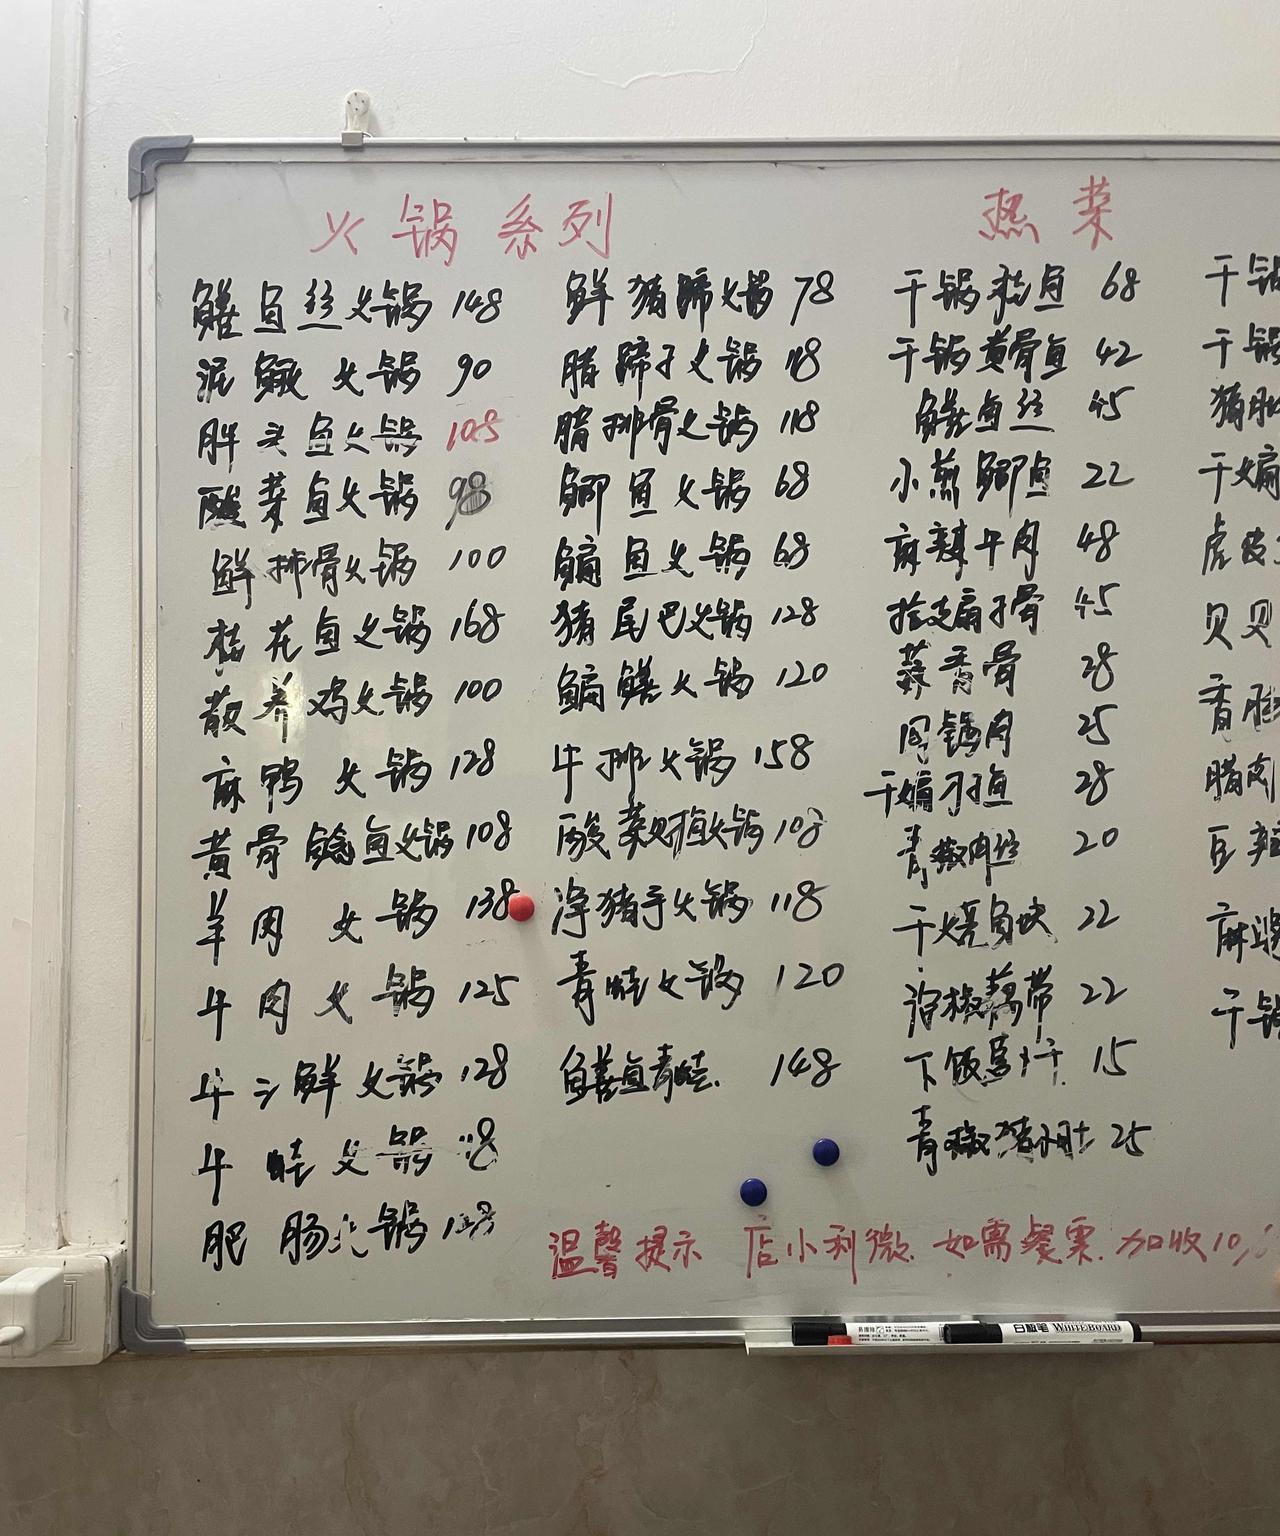 火锅系列
鳝鱼丝火锅 148
泥鳅火锅 90
胖头鱼火锅 108
酸菜鱼火锅 98
鲜排骨火锅 100
桂花鱼火锅 168
散养鸡火锅 100
麻鸭火锅 128
黄骨鱼火锅 108
羊肉火锅 138
牛肉火锅 125
牛三鲜火锅 128
牛蛙火锅 118
肥肠火锅
鲜猪蹄火锅 78
腊蹄子火锅 118
腊排骨火锅 118
鲫鱼火锅 68
鳊鱼火锅 68
猪尾巴火锅 128
鳊鳝火锅 120
牛排火锅 158
酸菜财鱼火锅 108
净猪手火锅 118
青蛙火锅 120
鳝鱼青蛙 148
热菜
干锅桂鱼 68
干锅黄骨鱼 42
鳝鱼丝 45
小煎鲫鱼 22
麻辣牛肉 48
扇子骨 45
蒜香骨 28
回锅肉 25
干煸刁子鱼 28
青椒肉丝 20
干烧鱼块 22
泡椒藕带 22
下饭 干 15
青椒猪肚 25
干锅
干锅
猪肚
干煸
虎皮
贝贝
香
腊肉
豆
麻
干锅
温馨提示 店小利微. 如需餐票. 加收10%
白板笔 WHITEBOARD